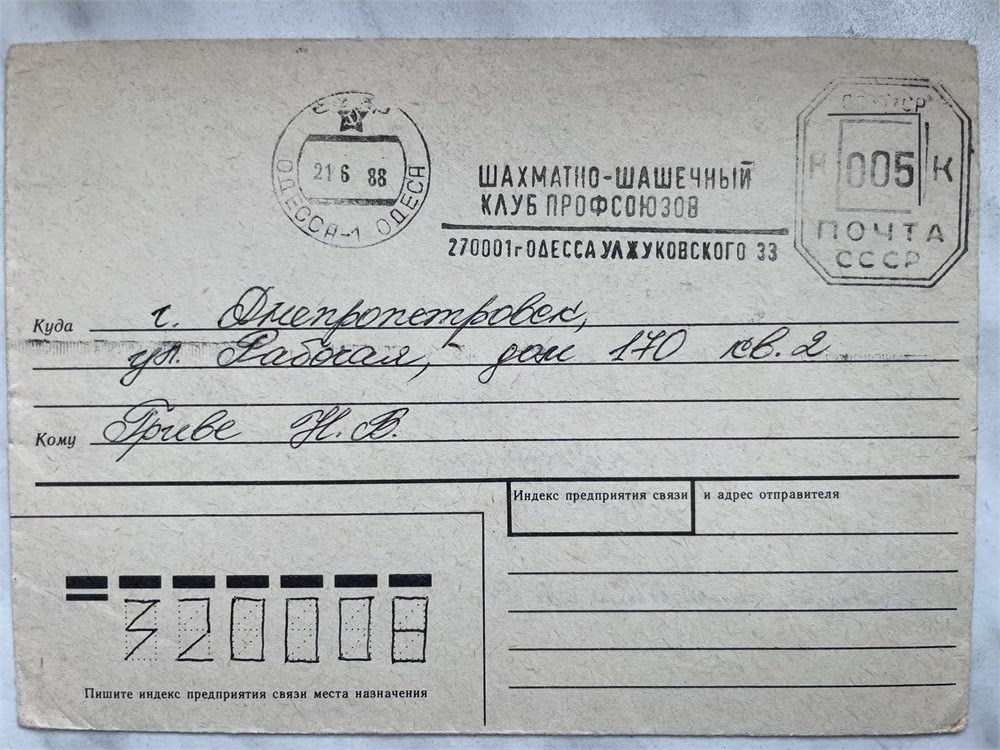 21 6 88
ОДЕССА-1 ОДЕСА
ШАХМАТНО-ШАШЕЧНЫЙ
КЛУБ ПРОФСОЮЗОВ
270001 г ОДЕССА УЛ ЖУКОВСКОГО 33
К 005 К
ПОЧТА
СССР
Куда г. Днепропетровск,
ул. Рабочая, дом 170 кв. 2
Кому Гриве Н. В.
Индекс предприятия связи и адрес отправителя
320008
Пишите индекс предприятия связи места назначения